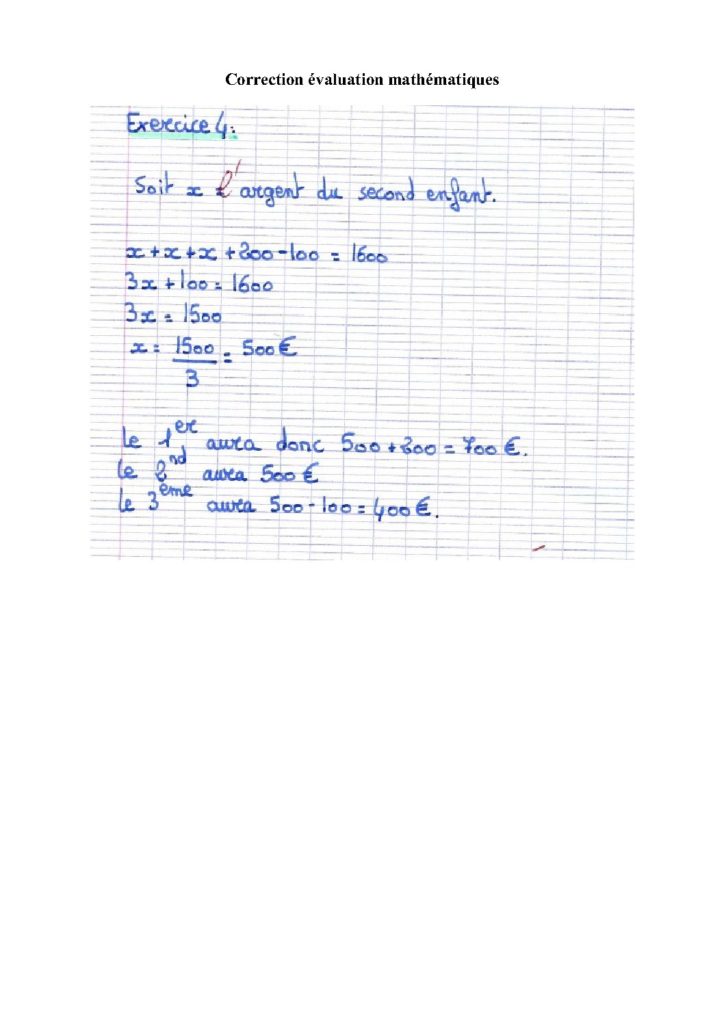 Correction évaluation mathématiques
Exercice 4:
Soit x l'argent du second enfant.
x + x + x + 200 - 100 = 1600
3x + 100 = 1600
3x = 1500
x = 1500/3 = 500 €
Le 1er aura donc 500 + 200 = 700 €.
Le 2nd aura 500 €
Le 3ème aura 500 - 100 = 400 €.